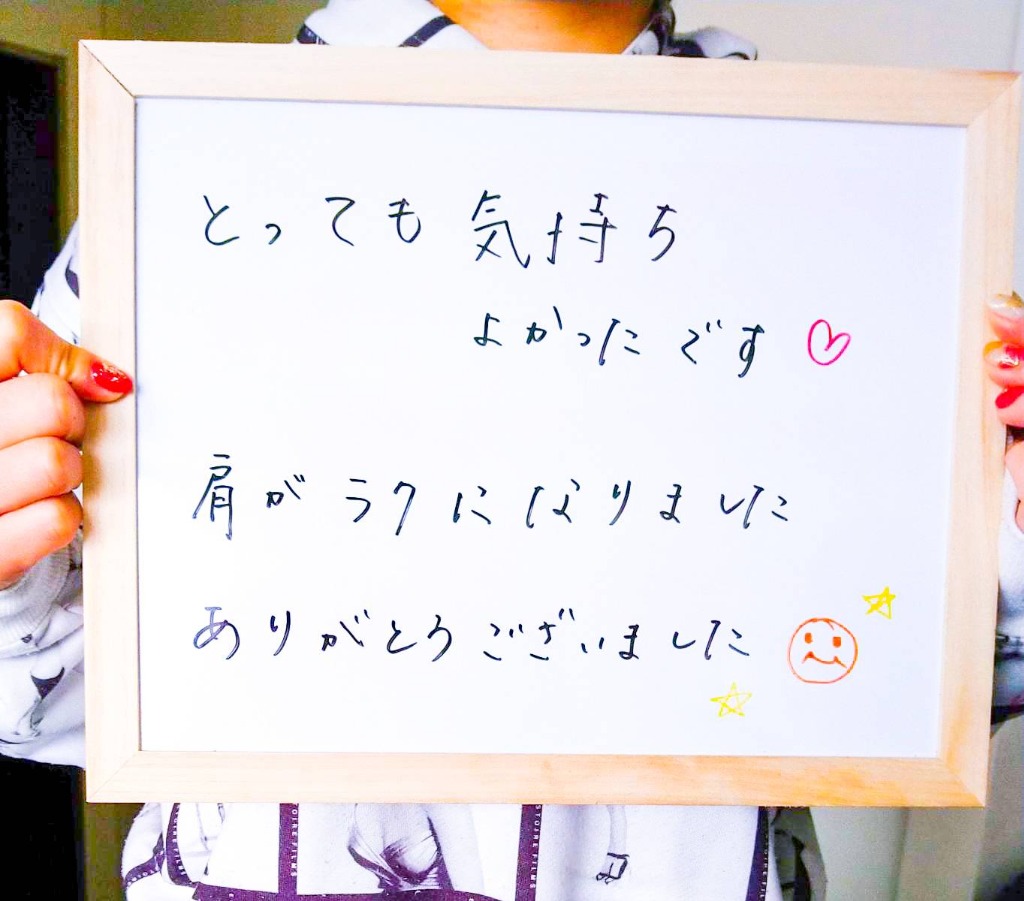 とっても気持ち
よかったです♡
肩がラクになりました
ありがとうございました
STOIRE FILMS